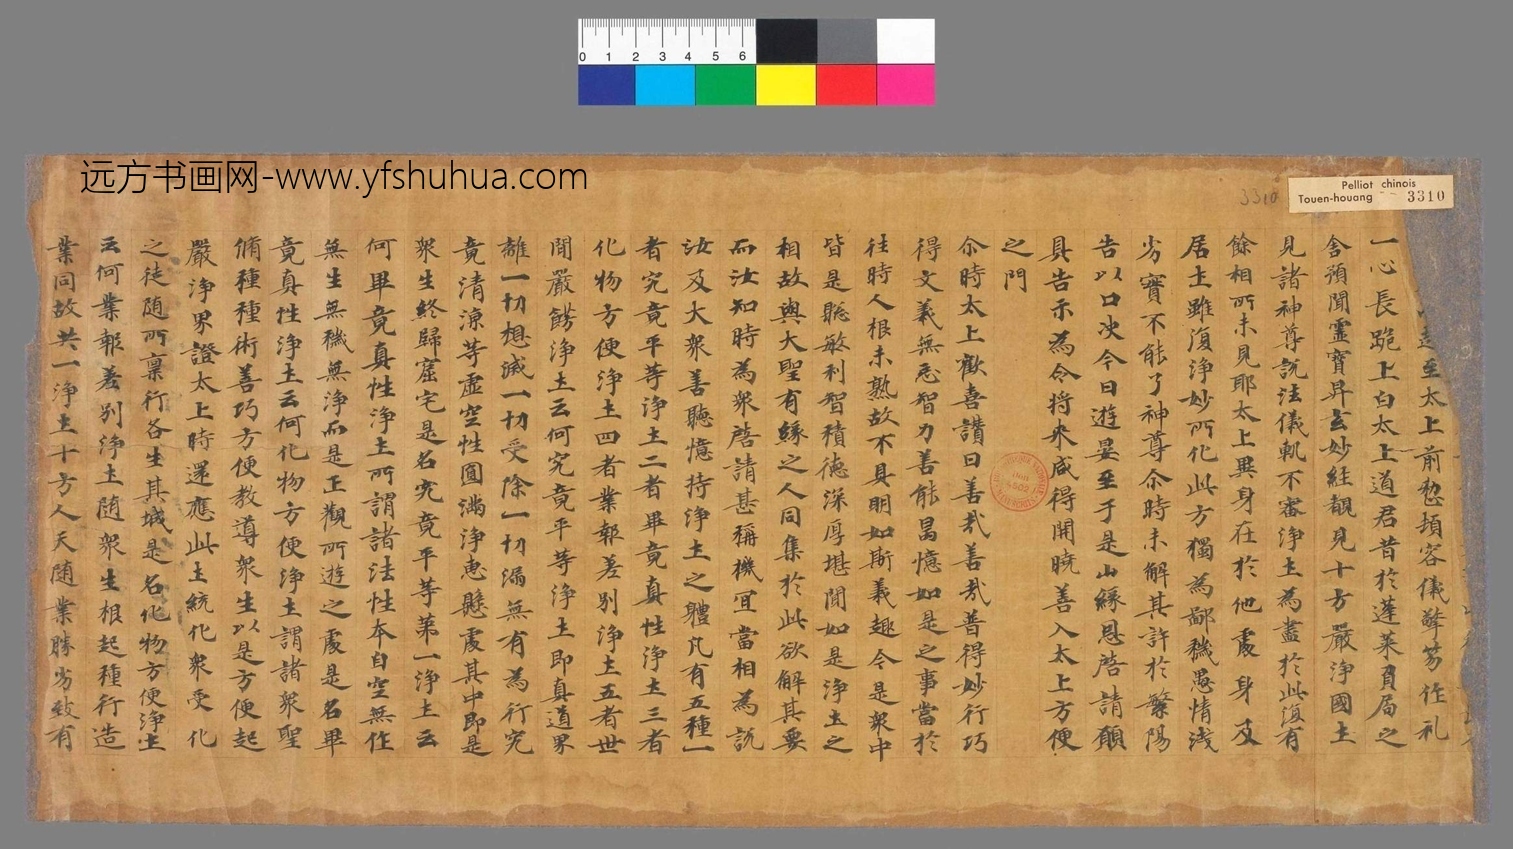 远方书画网-www.yfshuhua.com
0 1 2 3 4 5 6
3310
Pelliot chinois
Touen-houang 3310
至太上前愁頓容儀擎芴作礼
一心長跪上白太上道君昔於蓬萊負局之
舍預聞靈寶昇玄妙経覩見十方嚴淨國土
見諸神尊說法儀軌不審淨土為盡於此復有
餘相所未見耶太上異身在於他處身及
居土雖復淨妙所化此方獨為鄙穢愚情淺
劣實不能了神尊尒時未解其許於繁陽
告以口决今日遊晏至于是山緣恩啓請願
具告示為令将来咸得開曉善入太上方便
之門
尒時太上歡喜讃曰善㢤善㢤普得妙行巧
得文義無忘智力善能昌憶如是之事當於
往時人根未熟故不具明如斯義趣今是衆中
皆是聡敏利智積德深厚堪聞如是淨土之
相故與大聖有緣之人同集於此欲解其要
而汝知時為衆啓請甚稱機冝當相為說
汝及大衆善聽憶持淨土之體凢有五種一
者究竟平等淨土二者畢竟真性淨土三者
化物方便淨土四者業報差别淨土五者世
間嚴餝淨土云何究竟平等淨土即真道界
離一切想滅一切受除一切漏無有為行究
竟清涼等虛空性圓滿淨恵懸處其中即是
衆生終歸窟宅是名究竟平等第一淨土云
何畢竟真性淨土所謂諸法性本自空無作
無生無穢無淨而是正觀所遊之處是名畢
竟真性淨土云何化物方便淨土謂諸衆聖
脩種種術善巧方便教導衆生以是方便起
嚴淨界證太上時還應此土統化衆受化
之徒随所稟行各生其域是名化物方便淨土
云何業報差别淨土随衆生根起種行造
業同故共一淨土十方人天随業勝劣致有